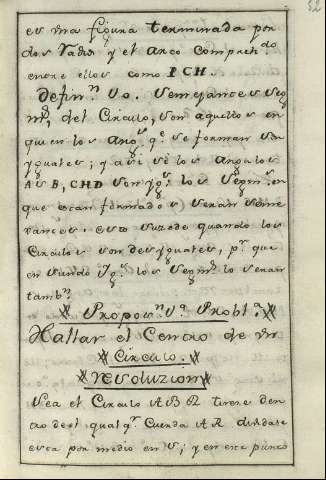 52
es vna figura terminada por
dos Radios y el arco comprehdo
entre ellos como I CH.
Definn Vo. Semejantes Seg
mtos del Circulo, son aquellos en
quien los Angs qe se forman son
yguales; y asi si los Angulos
ASB, CHD son ygs los Segms en
que estan formados seran seme
xantes. esto suzede quando los
Circulos son desyguales, pr que
en siendo Ygs los Segmtos lo seran
tambn
Proposn Va Probla
Hallar el Centro de vn
Circulo.
Resoluzion
Sea el Circulo ABR tirese den
tro del qual qr Cuerda AR diuidase
esta por medio en S; y en este punto